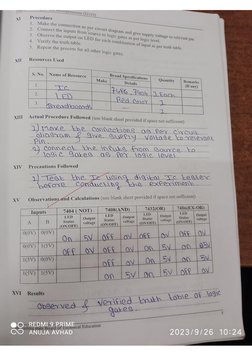 XI Procedure
1. Make the connections as per circuit diagram and give supply voltage to relevant pin.
2. Connect the inputs from source to logic gates as per logic level.
3. Observe the output on LED for each combination of input as per truth table.
4. Verify the truth table.
5. Repeat the process for all other logic gates.
XII Resources Used
S. No. Name of Resource Broad Specifications Quantity Remarks (If any)
Make Details
1. IC 1 Each
2. LED Red Color 1
3. Breadboard
XIII Actual Procedure Followed (use blank sheet provided if space not sufficient)
1) Make the connections as Per Circuit
diagram & give supply voltage to relevant
Pin.
2) connect the inputs from source to
logic gates as per logic level
XIV Precautions Followed
1) Test the Ic using digital Ic tester
before conducting the experiment.
XV Observations and Calculations (use blank sheet provided if space not sufficient)
Inputs 7404 ( NOT) 7408(AND) 7432(OR) 7486(EX-OR)
A B LED Status (ON/OFF) Output voltage LED Status (ON/OFF) Output voltage LED Status (ON/OFF) Output voltage LED Status (ON/OFF) Output voltage
0(0V) 0(0V) on 5V OFF 0V OFF 0V OFF 0V
0(0V) 1(5V) OFF 0V OFF 0V on 5V on
1(5V) 0(0V) OFF 0V on 5V on 5V
1(5V) 1(5V) on 5V on 5V OFF 0V
XVI Results
observed & verified truth table of logic
gates.
REDMI 9 PRIME
ANUJA AVHAD
2023/9/26 10:24